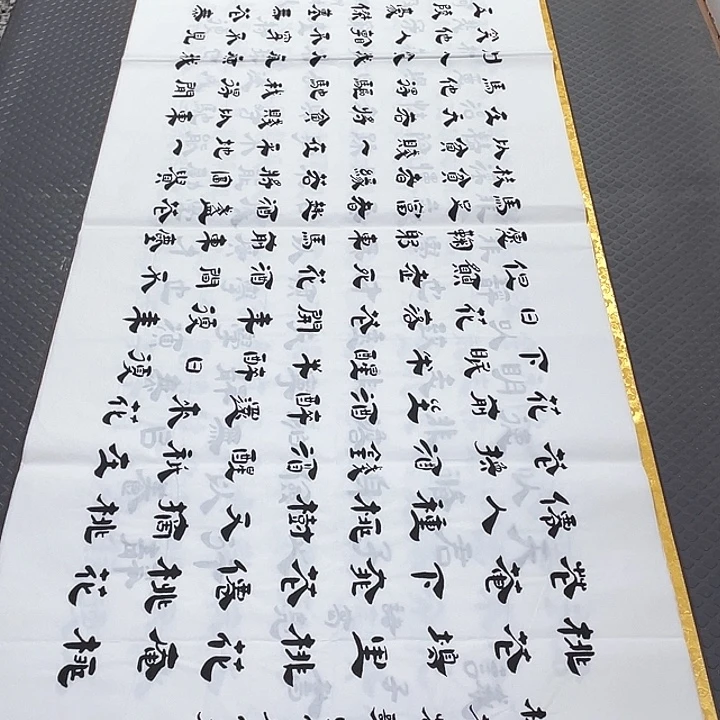 桃花塢里桃花庵桃
花庵下桃花僊桃花
僊人種桃樹又摘桃
花換酒錢酒醒秖在
花前坐酒醉還来花
下眠半醒半醉日復
日花落花開年復年
但願老死花酒間不
願鞠躬車馬前車塵
馬足富者趣酒盞花
枝貧者緣若將富貴
比貧賤一在平地一
在天若將貧賤比車
馬他得驅馳我得閒
人笑我我
笑他人不穿不見